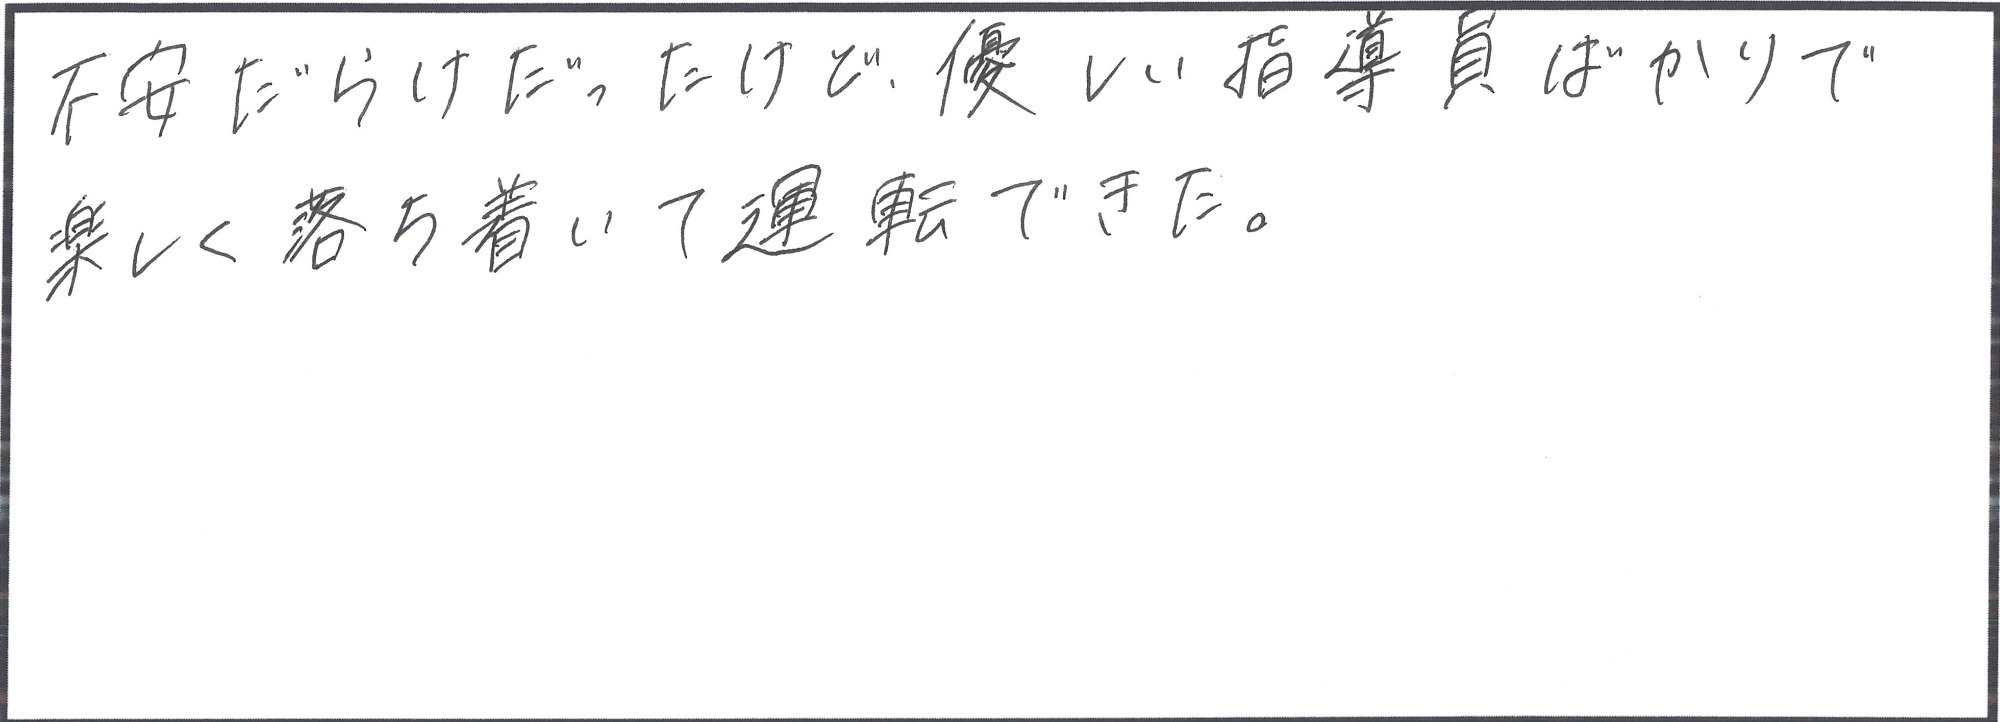 不安だらけだったけど、優しい指導員ばかりで
楽しく落ち着いて運転できた。